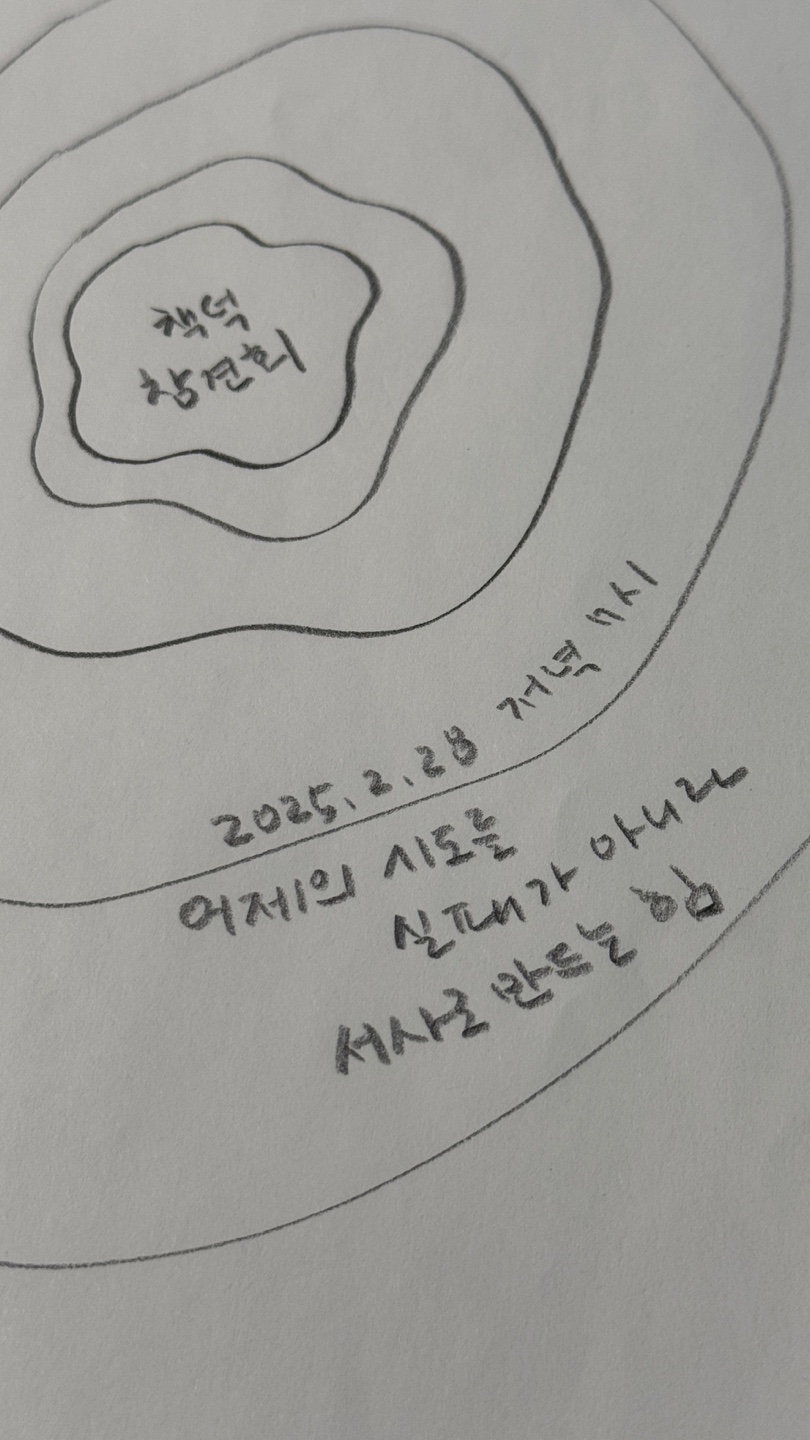 책덕
참견회
2025.2.28 저녁 7시
어제의 시도를
실패가 아니라
서사로 만드는 힘